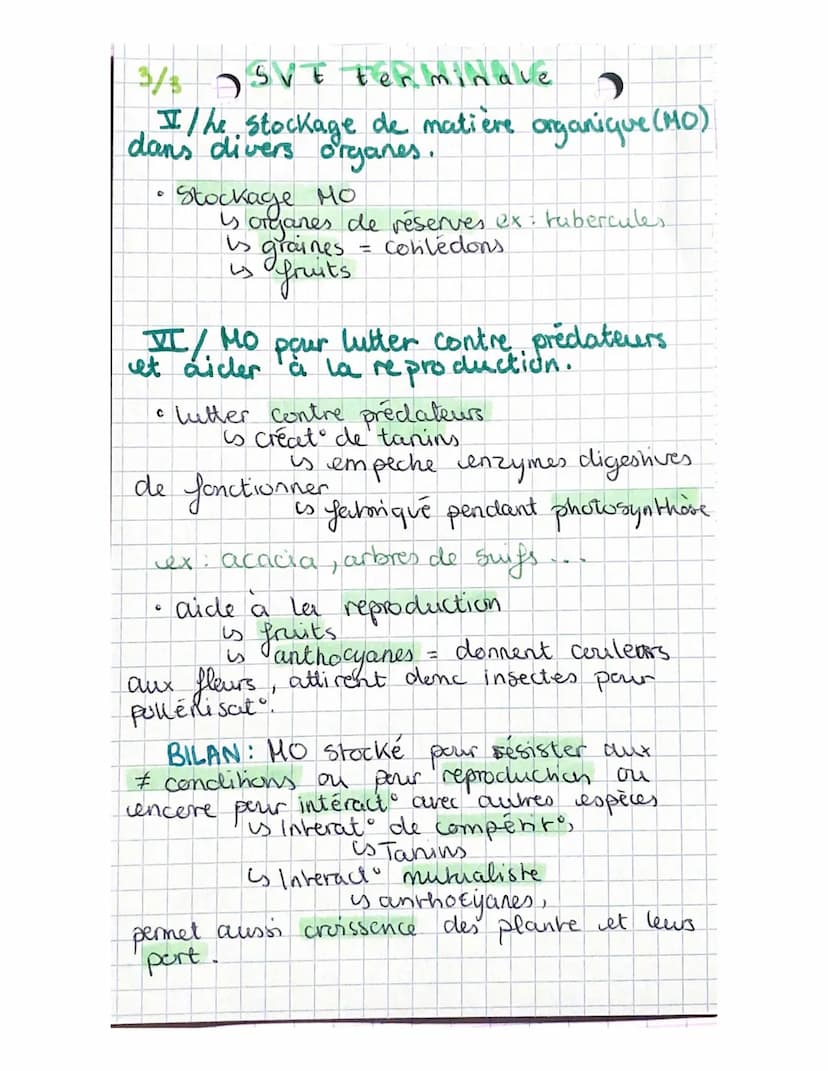 3/3 SVT TERMINALE
V/ Le stockage de matière organique (MO)
dans divers organes.
• Stockage MO
↳ organes de réserves ex : tubercules
↳ graines = cotilédons
↳ fruits
VI/ MO pour lutter contre prédateurs
et aider à la reproduction.
• lutter contre prédateurs
↳ créat° de tanins
↳ empeche enzymes digestives
de fonctionner
↳ fabriqué pendant photosynthèse
ex : acacia, arbres de suifs ...
• aide à la reproduction
↳ fruits
↳ anthocyanes = donnent couleurs
aux fleurs, attirent donc insectes pour
pollénisat°.
BILAN : MO stocké pour résister aux
≠ conditions ou pour reproduction ou
encore pour intéract° avec autres espèces
↳ Interat° de compétit°,
↳ Tanins
↳ Interact° mutualiste
↳ anthocyanes,
permet aussi croissence des plante et leurs
port.